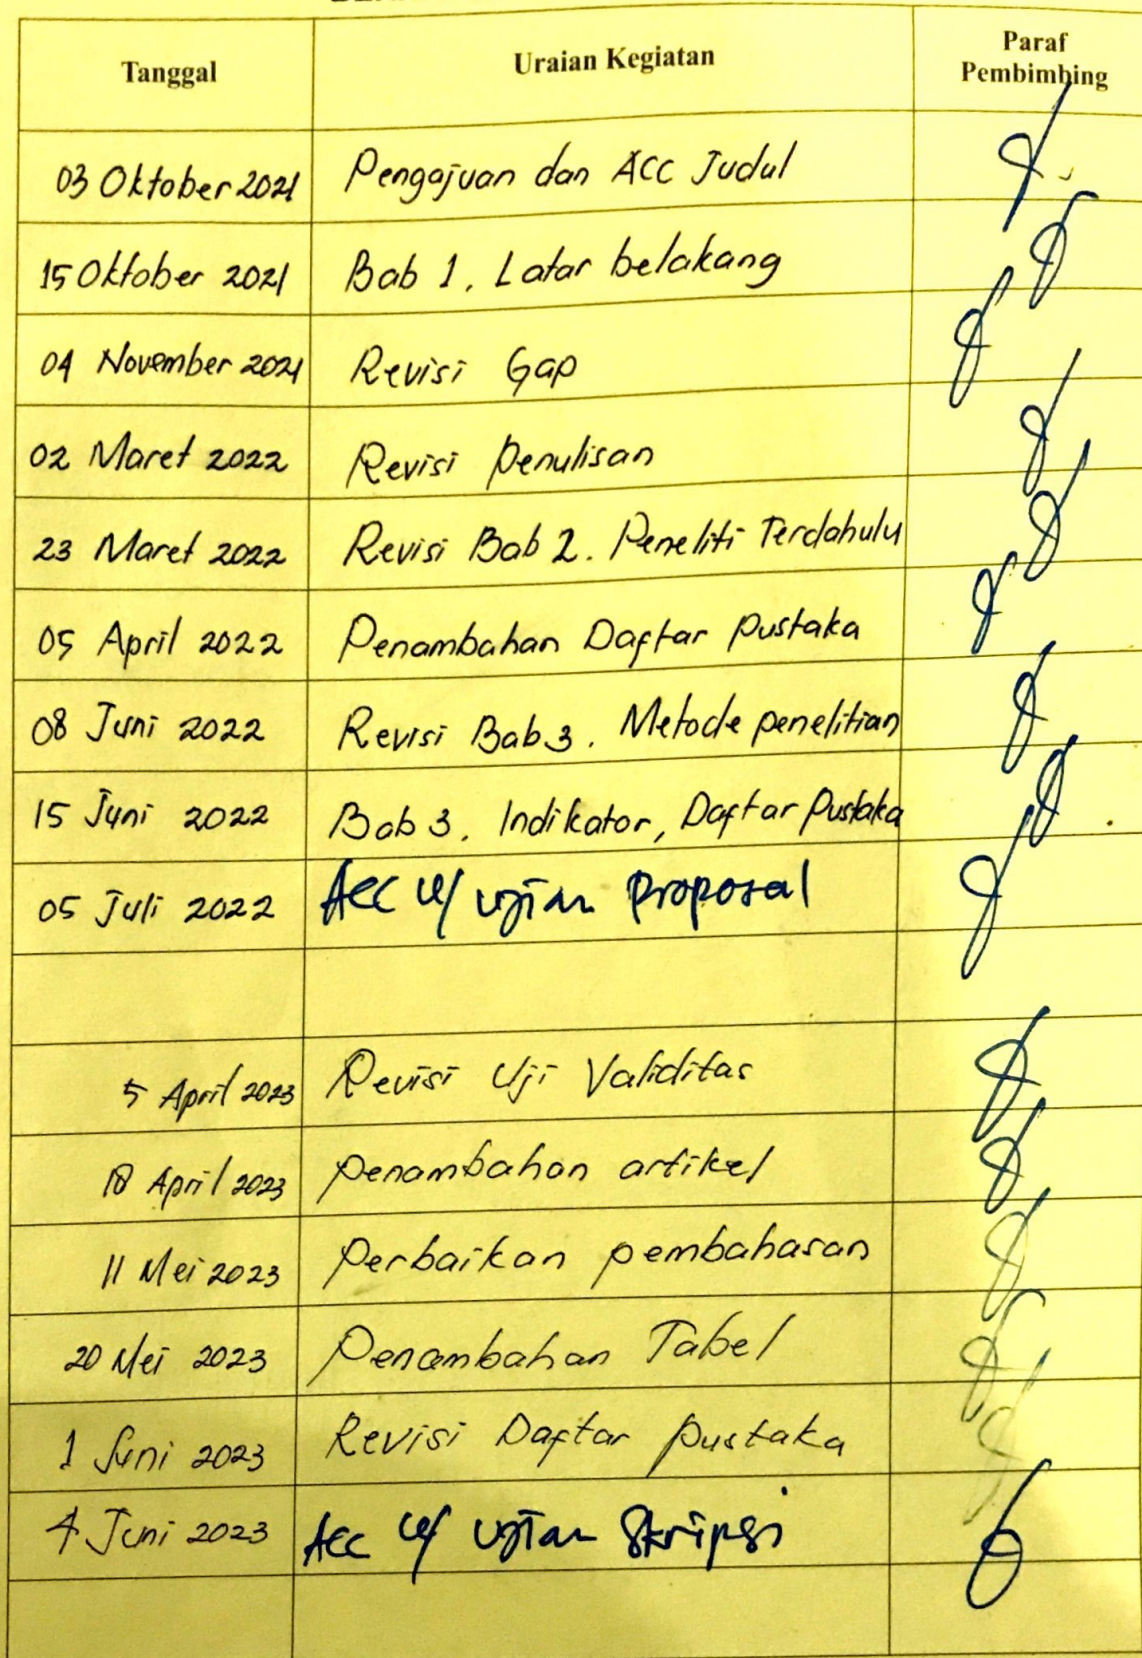 Tanggal Uraian Kegiatan Paraf Pembimbing
03 Oktober 2021 Pengajuan dan ACC Judul
15 Oktober 2021 Bab 1. Latar belakang
04 November 2021 Revisi Gap
02 Maret 2022 Revisi Penulisan
23 Maret 2022 Revisi Bab 2. Peneliti Terdahulu
05 April 2022 Penambahan Daftar Pustaka
08 Juni 2022 Revisi Bab 3. Metode penelitian
15 Juni 2022 Bab 3. Indikator, Daftar Pustaka
05 Juli 2022 Acc u/ ujian proposal
5 April 2023 Revisi Uji Validitas
18 April 2023 Penambahan artikel
11 Mei 2023 Perbaikan pembahasan
20 Mei 2023 Penambahan Tabel
1 Juni 2023 Revisi Daftar Pustaka
4 Juni 2023 Acc u/ ujian Skripsi